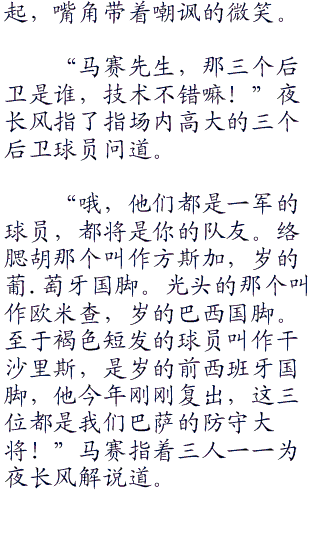 起，嘴角带着嘲讽的微笑。
“马赛先生，那三个后
卫是谁，技术不错嘛！”夜
长风指了指场内高大的三个
后卫球员问道。
“哦，他们都是一军的
球员，都将是你的队友。络
腮胡那个叫作方斯加，岁的
葡.萄牙国脚。光头的那个叫
作欧米查，岁的巴西国脚。
至于褐色短发的球员叫作干
沙里斯，是岁的前西班牙国
脚，他今年刚刚复出，这三
位都是我们巴萨的防守大
将！”马赛指着三人一一为
夜长风解说道。